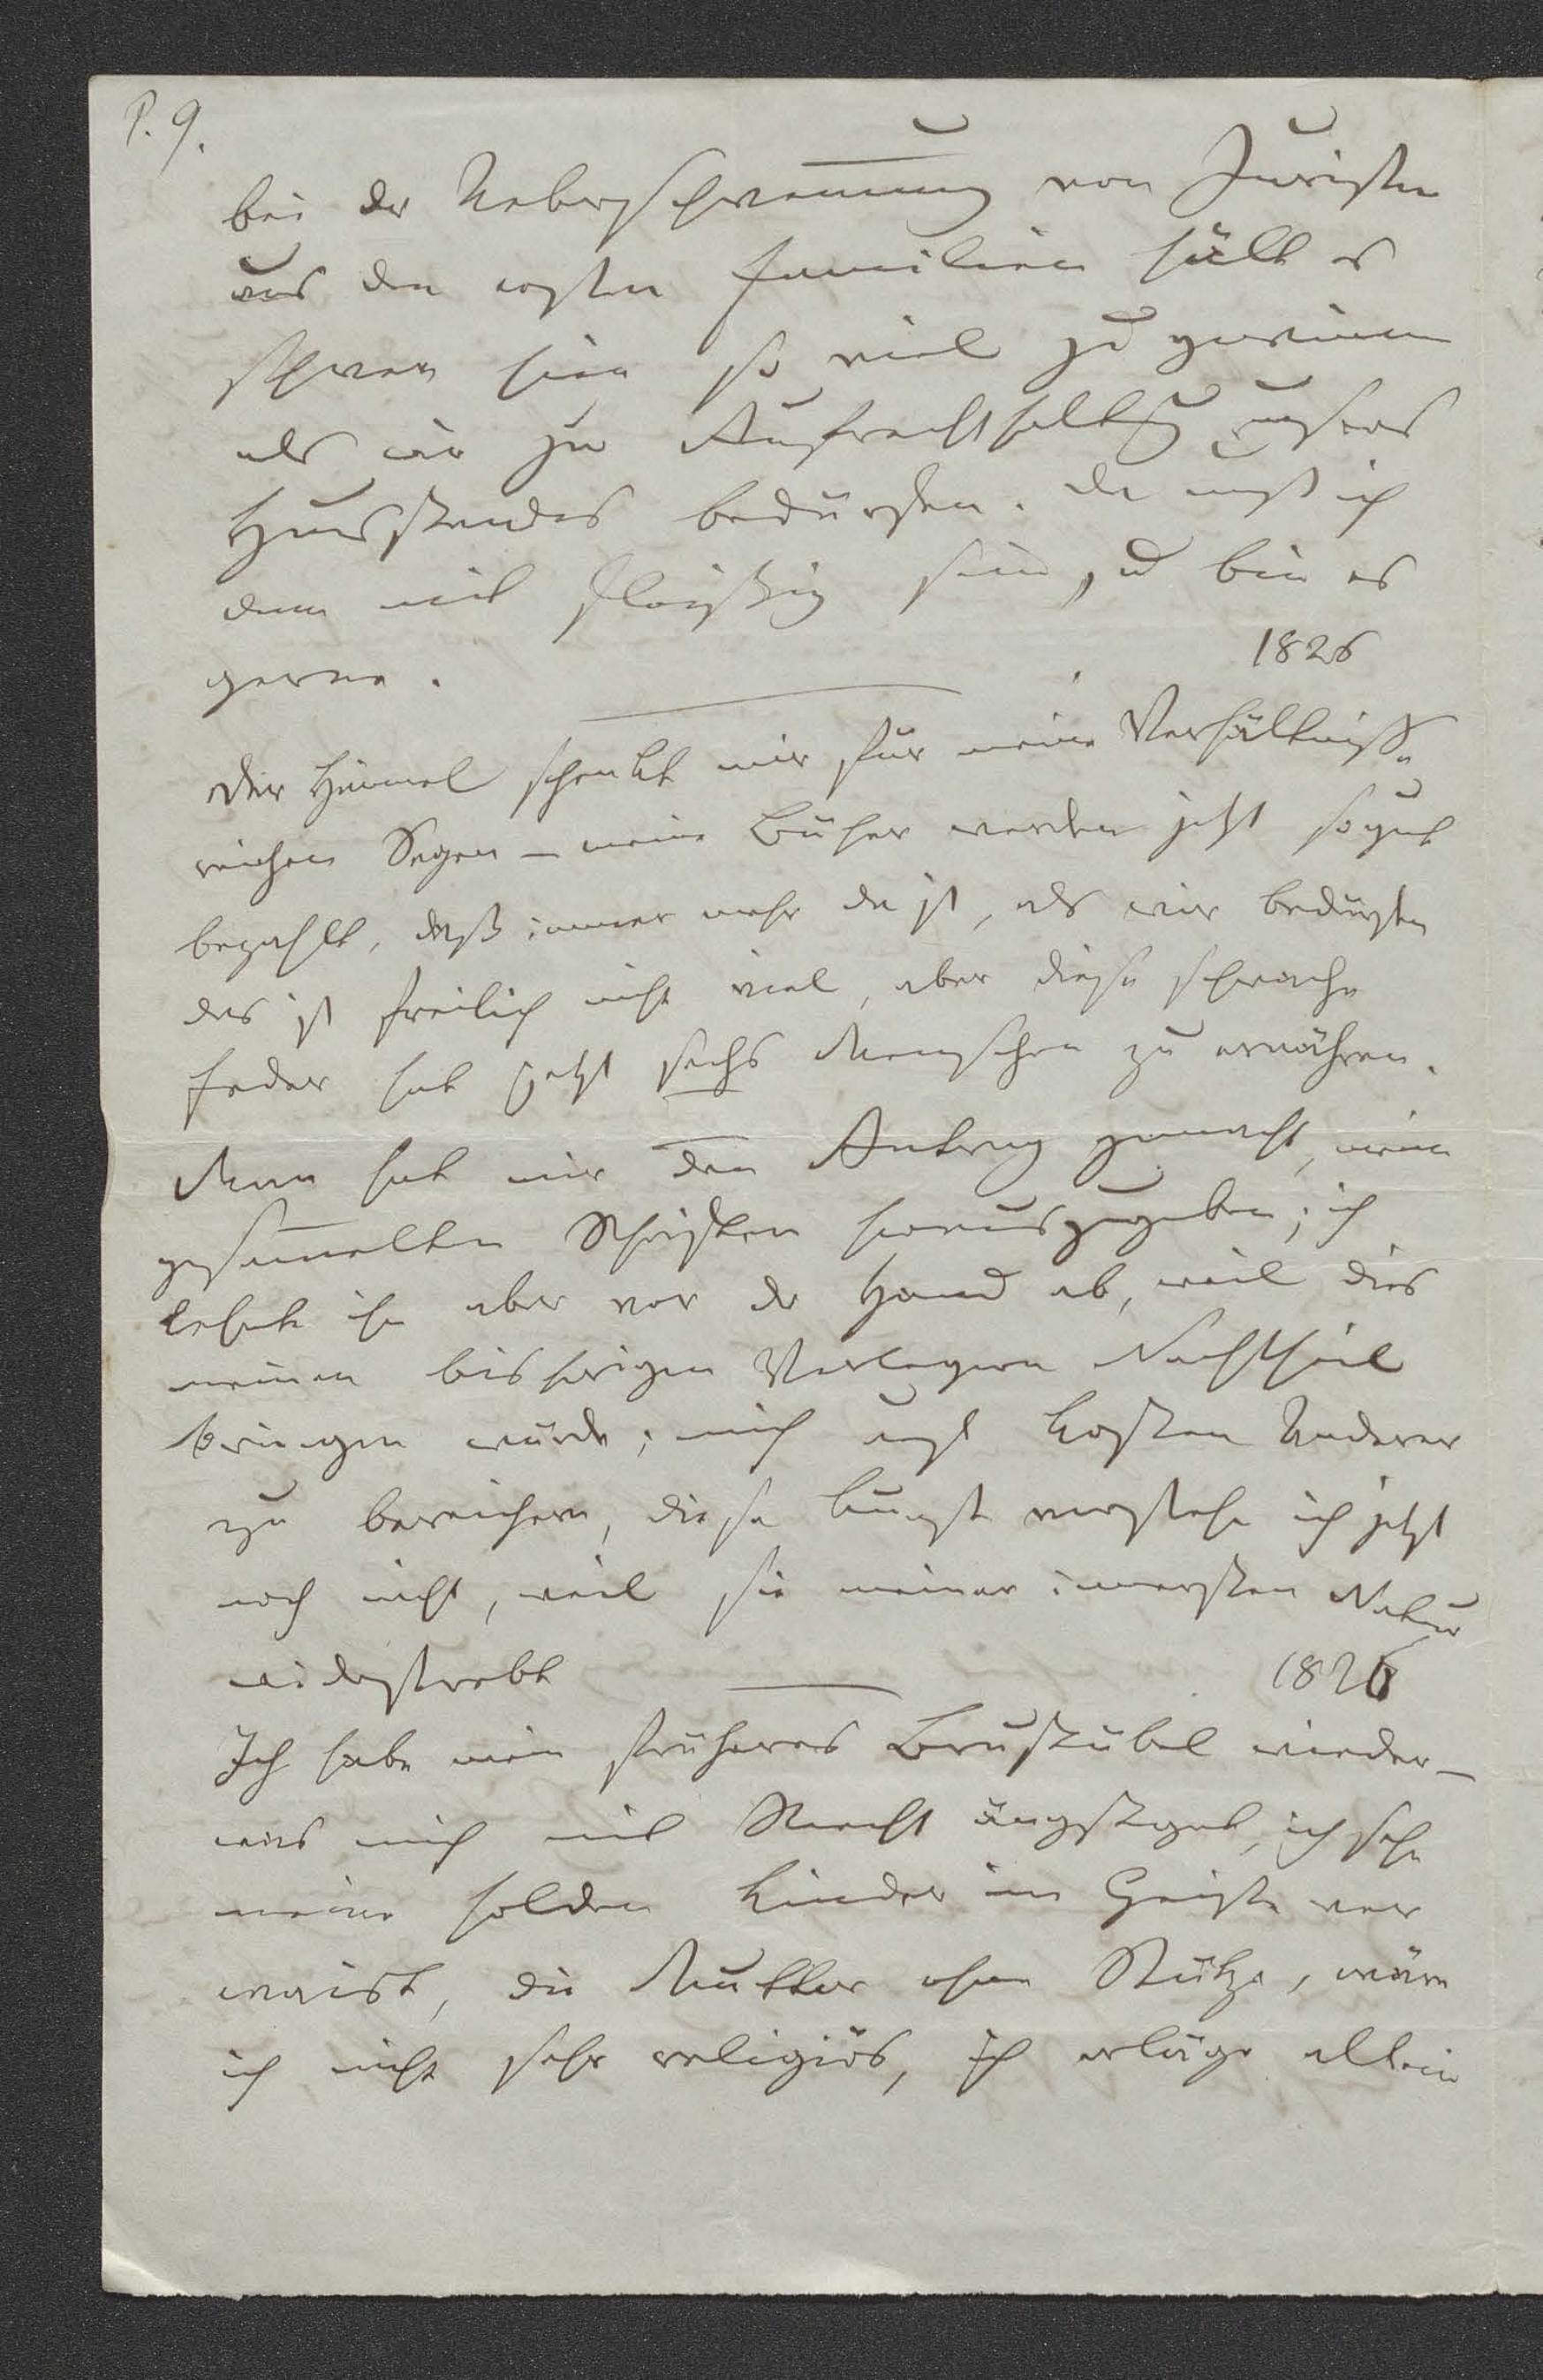 P. 9.
bei der Ueberschwemmung von Juristen
aus den ersten Familien hält es
schwer hier so viel zu gewinnen
als wir zur Aufrechthaltg unsers
Hausstandes bedürfen. Da muß ich
denn mit fleißig sein, u bin es
gerne.
1826
Der Himmel schenkt mir für meine Verhältnisse
reichen Segen – meine Bücher werden jetzt so gut
bezahlt, daß immer mehr da ist, als wir bedürfen
das ist freilich nicht viel, aber diese schwache
Feder hat jetzt sechs Menschen zu ernähren.
Man hat mir den Antrag gemacht, meine
gesammelten Schriften herauszugeben; ich
lehnte ihn aber vor der Hand ab, weil dies
meinen bisherigen Verlegern Nachtheil
bringen würde; mich auf Kosten Anderer
zu bereichern, diese Kunst verstehe ich jetzt
noch nicht, weil sie meiner innersten Natur
widerstrebt
1826
Ich habe mein früheres Brustübel wieder –
was mich mit Recht ängstiget, ich sehe
meine holden Kinder im Geiste ver
waist, die Mutter ohne Stütze, wäre
ich nicht sehr religiös, ich erläge allein